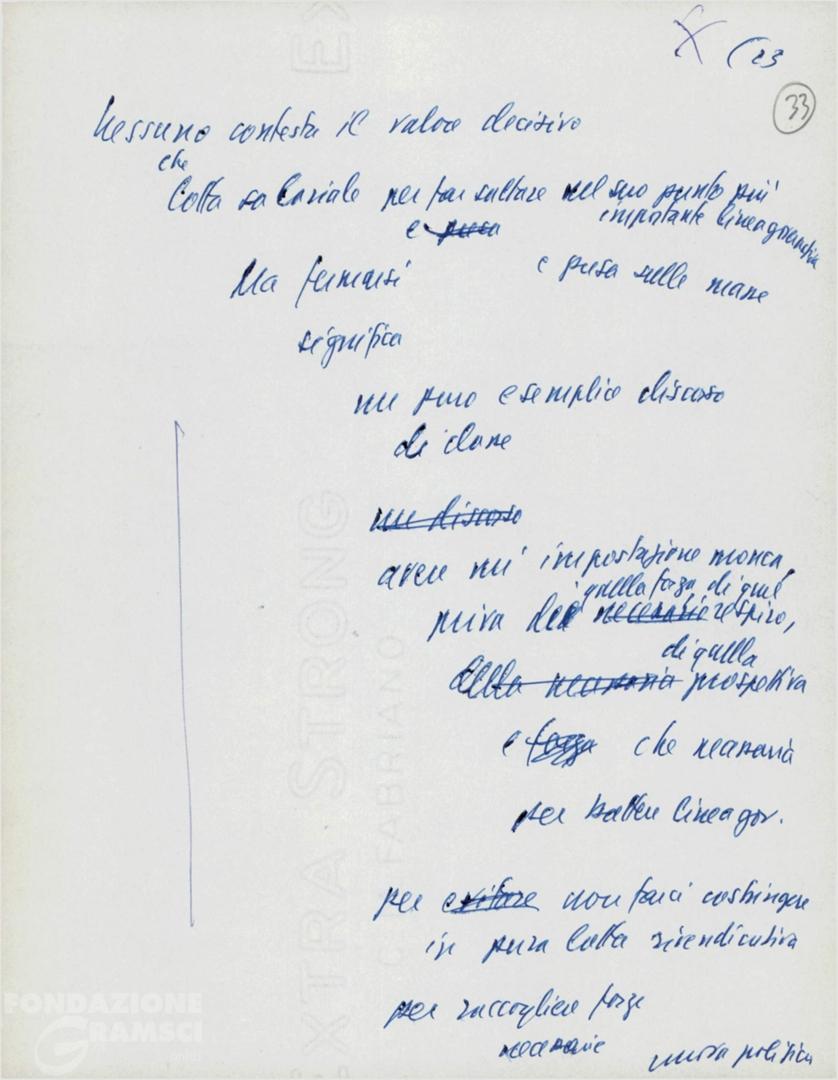 X (23
33
Nessuno contesta il valore decisivo
che
lotta salariale per far saltare nel suo punto più
importante linea governativa
e presa
Ma fermarsi
e presa sulle masse
significa
un puro e semplice discorso
di classe
un discorso
avere un' impostazione monca,
quella forza, di quel
priva del necessario respiro,
di quella
della necessaria prospettiva
e forza che necessaria
per battere linea gov.
per evitare non farci costringere
in pura lotta rivendicativa
per raccogliere forze
necessarie
nuova politica
EXTRA STRONG
C. FABRIANO
FONDAZIONE
GRAMSCI
onlus